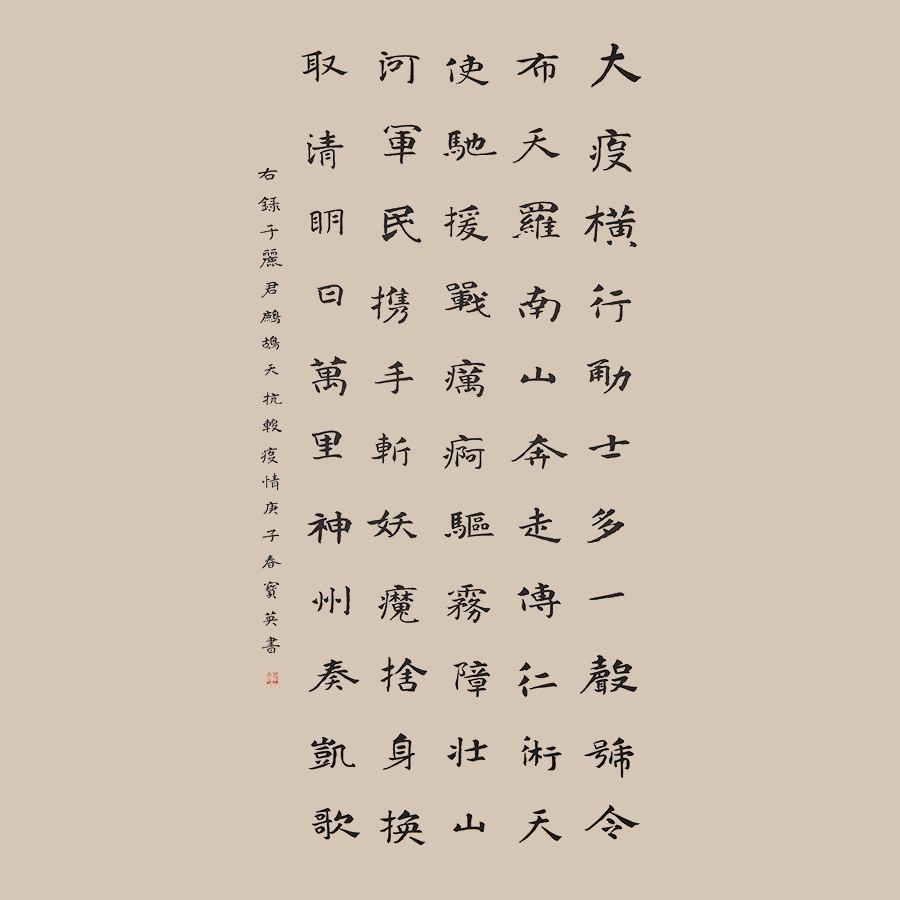 大疫橫行勇士多一聲號令
布天羅南山奔走傳仁術天
使馳援戰癘疴驅霧障壯山
河軍民携手斬妖魔捨身換
取清明日萬里神州奏凱歌
右錄于麗君鷓鴣天抗疫情庚子春寶英書